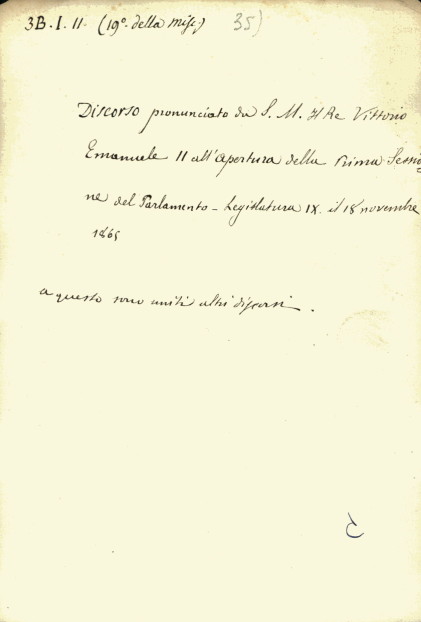 3B. I. 11. (19º della Misc.) 35)
Discorso pronunciato da S. M. Il Re Vittorio
Emanuele II all'apertura della Prima Sessio
ne del Parlamento - Legislatura IX. il 18 novembre
1865
a questo sono uniti altri discorsi.